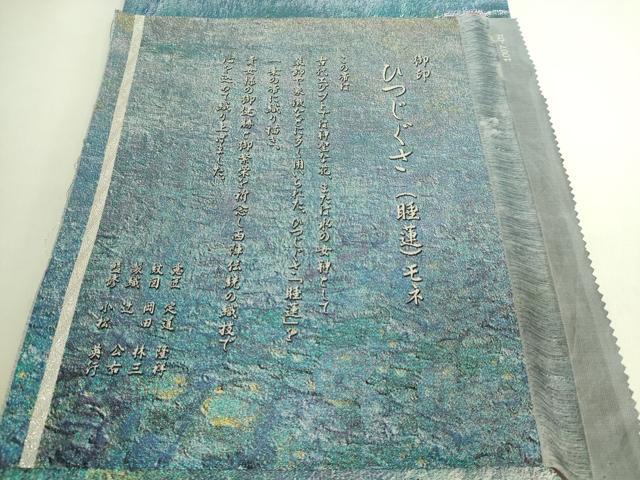 御印
ひつじぐさ（睡蓮）モネ
この帯は
古代エジプトでは神聖な花、または水の女神として
装飾や象徴などに多く用いられた、ひつじぐさ「睡蓮」を
一条の帯に織り描き、
貴女様の御健勝と御繁栄を祈念し西陣伝統の織技で
心を込めて織り上げました。
意匠 定道 隆祥
紋図 岡田 林三
製織 辻 公有
小松